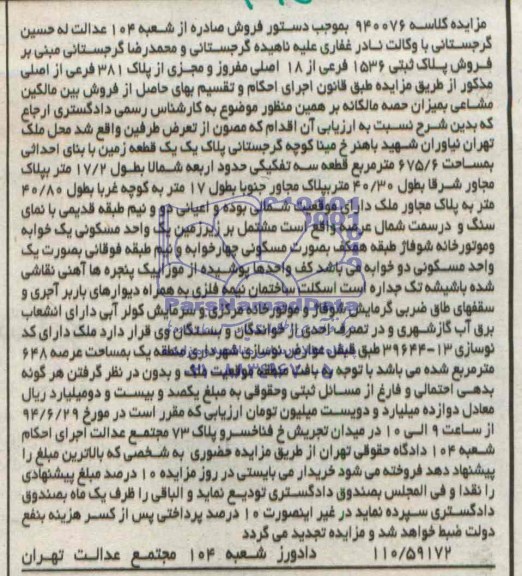 مزایده کلاسه ۹۴۰۰۷۶ بموجب دستور فروش صادره از شعبه ۱۰۴ عدالت له حسین
گرجستانی با وکالت نادر غفاری علیه ناهیده گرجستانی و محمدرضا گرجستانی مبنی بر
فروش پلاک ثبتی ۱۵۳۶ فرعی از ۱۸ اصلی مفروز و مجزی از پلاک ۳۸۱ فرعی از اصلی
مذکور از طریق مزایده طبق قانون اجرای احکام و تقسیم بهای حاصل از فروش بین مالکین
مشاعی بمیزان حصه مالکانه بر همین منظور موضوع به کارشناس رسمی دادگستری ارجاع
که بدین شرح نسبت به ارزیابی آن اقدام که مصون از تعرض طرفین واقع شد محل ملک
تهران نیاوران شهید باهنر خ مینا کوچه گرجستانی پلاک یک یک قطعه زمین با بنای احداثی
بمساحت ۶۷۵/۶ مترمربع قطعه سه تفکیکی حدود اربعه شمالا بطول ۱۷/۲ متر بپلاک
مجاور شرقا بطول ۴۰/۳۰ متربپلاک مجاور جنوبا بطول ۱۷ متر به کوچه غربا بطول ۴۰/۸۰
متر به پلاک مجاور ملک دارای موقعیت شمالی بوده و اعیانی دو و نیم طبقه قدیمی با نمای
سنگ و درسمت شمال عرصه واقع است مشتمل بر زیرزمین یک واحد مسکونی یک خوابه
وموتورخانه شوفاژ طبقه همکف بصورت مسکونی چهارخوابه و نیم طبقه فوقانی بصورت یک
واحد مسکونی دو خوابه می باشد کف واحدها پوشیده از موزاییک پنجره ها آهنی نقاشی
شده باشیشه تک جداره است اسکلت ساختمان نیمه فلزی به همراه دیوارهای باربر آجری و
سقفهای طاق ضربی گرمایش شوفاژ و موتورخانه مرکزی و سرمایش کولر آبی دارای انشعاب
برق آب گازشهری و در تصرف احدی از خواندگان و بستگان وی قرار دارد ملک دارای کد
نوسازی ۱۳-۳۹۶۴۴ طبق قبض عوارض نوسازی شهرداری منطقه یک بمساحت عرصه ۶۴۸
مترمربع شده می باشد با توجه به بافت منطقه موقعیت ملک و بدون در نظر گرفتن هر گونه
بدهی احتمالی و فارغ از مسائل ثبتی وحقوقی به مبلغ یکصد و بیست و دومیلیارد ریال
معادل دوازده میلیارد و دویست میلیون تومان ارزیابی که مقرر است در مورخ ۹۴/۶/۲۹
از ساعت ۹ الی ۱۰ در میدان تجریش خ فناخسرو پلاک ۷۳ مجتمع عدالت اجرای احکام
شعبه ۱۰۴ دادگاه حقوقی تهران از طریق مزایده حضوری به شخصی که بالاترین مبلغ را
پیشنهاد دهد فروخته می شود خریدار می بایستی در روز مزایده ۱۰ درصد مبلغ پیشنهادی
را نقدا و فی المجلس بصندوق دادگستری تودیع نماید و الباقی را ظرف یک ماه بصندوق
دادگستری سپرده نماید در غیر اینصورت ۱۰ درصد پرداختی پس از کسر هزینه بنفع
دولت ضبط خواهد شد و مزایده تجدید می گردد
۱۱۰/۵۹۱۷۲ دادورز شعبه ۱۰۴ مجتمع عدالت تهران
ParsNamadData